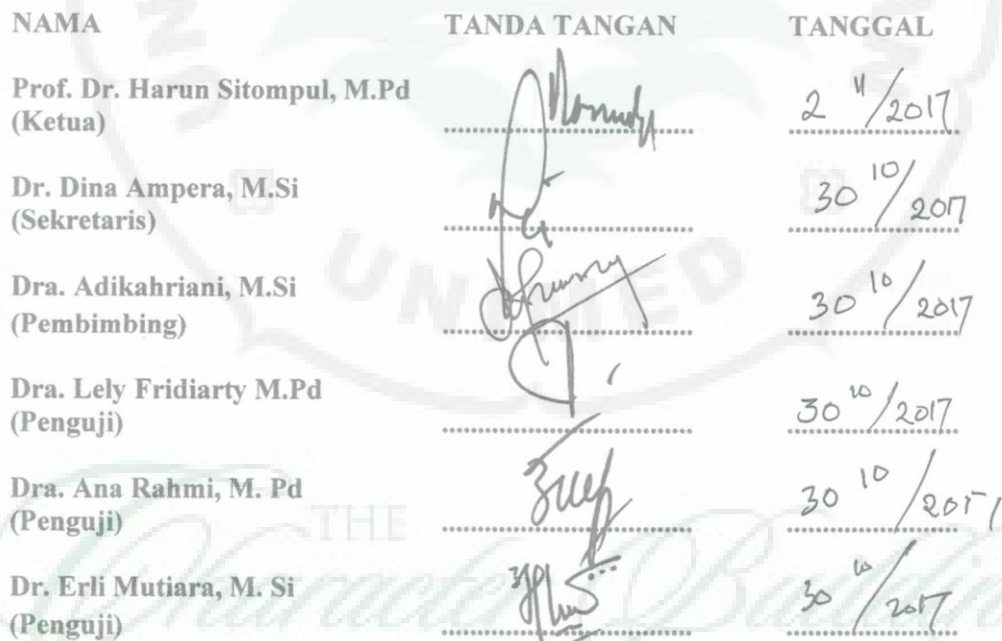 NAMA TANDA TANGAN TANGGAL
Prof. Dr. Harun Sitompul, M.Pd
(Ketua) 2 11/2017
Dr. Dina Ampera, M.Si
(Sekretaris) 30 10/2017
Dra. Adikahriani, M.Si
(Pembimbing) 30 10/2017
Dra. Lely Fridiarty M.Pd
(Penguji) 30 10/2017
Dra. Ana Rahmi, M. Pd
(Penguji) 30 10/2017
Dr. Erli Mutiara, M. Si
(Penguji) 30 10/2017
UNIMED
THE
Character Buildin